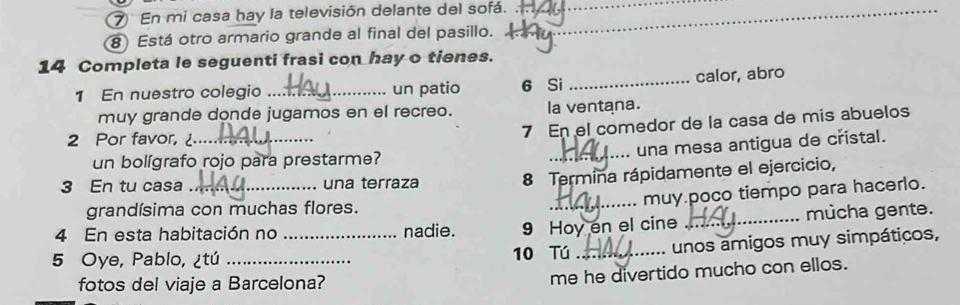 ⑦ En mi casa hay la televisión delante del sofá. .HAy............
⑧ Está otro armario grande al final del pasillo. .HAy............
14 Completa le seguenti frasi con hay o tienes.
1 En nuestro colegio ....HAy.... un patio
muy grande donde jugamos en el recreo.
2 Por favor, ¿....HAy....
un bolígrafo rojo para prestarme?
3 En tu casa ..HAy.... una terraza
grandísima con muchas flores.
4 En esta habitación no .................... nadie.
5 Oye, Pablo, ¿tú ....................
fotos del viaje a Barcelona?
6 Si .................... calor, abro
la ventana.
7 En el comedor de la casa de mis abuelos
..HAy.... una mesa antigua de cristal.
8 Termina rápidamente el ejercicio,
..HAy.... muy poco tiempo para hacerlo.
9 Hoy en el cine ..HAy.... mucha gente.
10 Tú ..HAy.... unos amigos muy simpáticos,
me he divertido mucho con ellos.